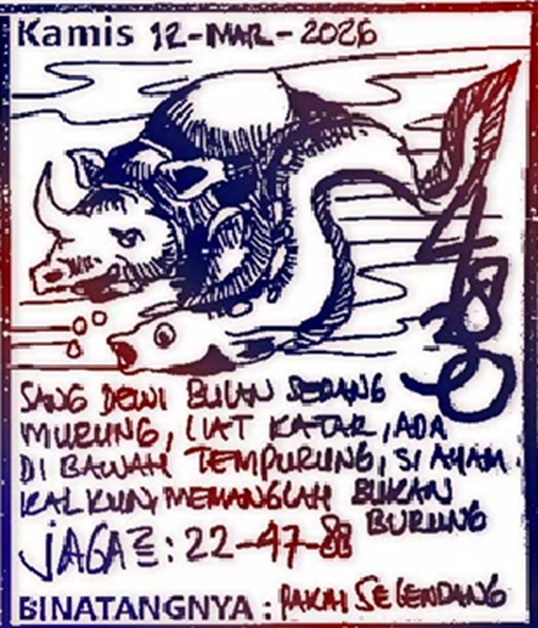 Kamis 12-MAR-2026
SANG DEWI BULAN SEDANG
MURUNG, LIAT KATAK, ADA
DI BAWAH TEMPURUNG, SI AYAM
KALKUN, MEMANGLAH BUKAN
BURUNG
JAGA2: 22-47-88
BINATANGNYA: PAKAI SELENDANG